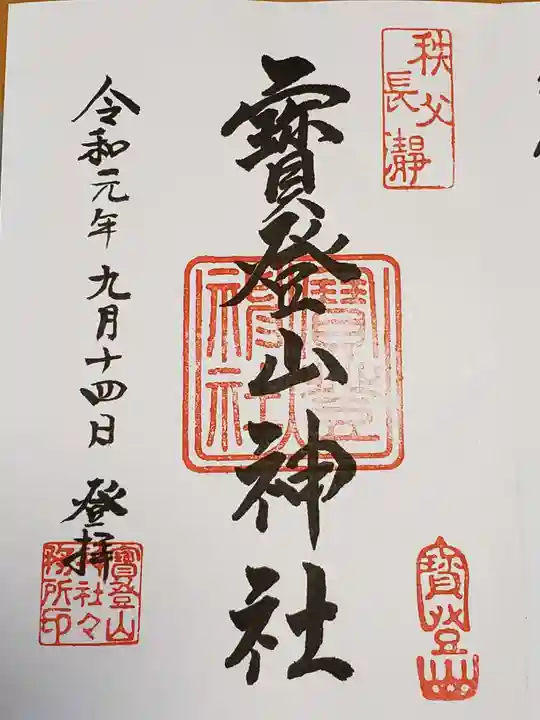 秩父
長瀞
寳登山
寳登山神社
寳登
神社
令和元年九月十四日 登拝
寳登山
神社々
務所印